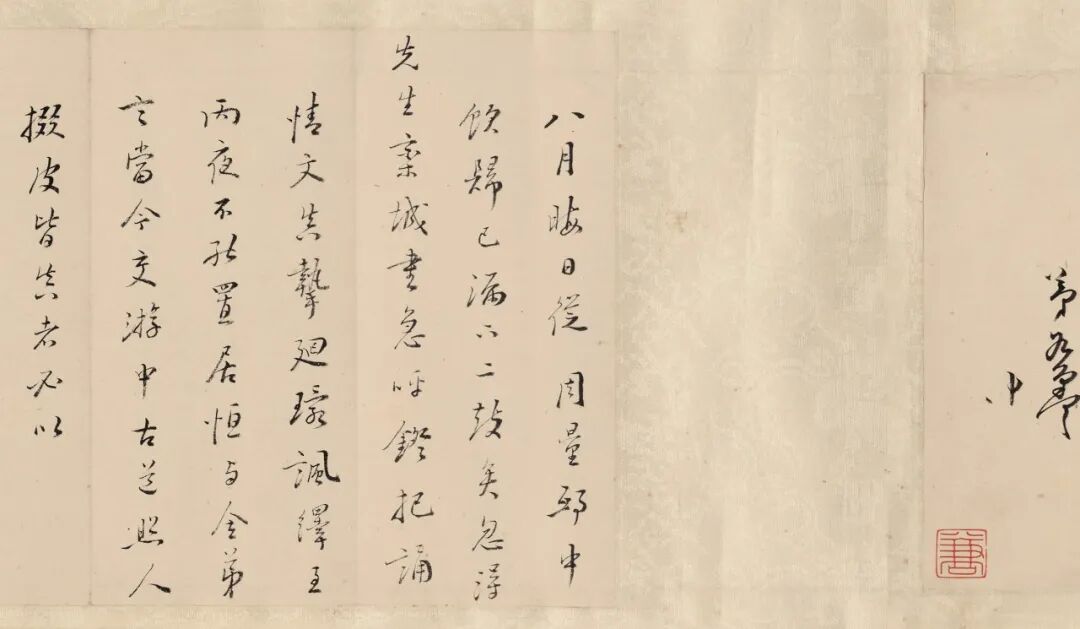 弟
中
八月晦日從 周量邸中
飲歸已漏下二鼓矣忽得
先生欒城書急呼鐙把誦
情文真摯廻環諷繹至
兩夜不能置居恒与令弟
言當今交游中古道照人
掇皮皆真者必以